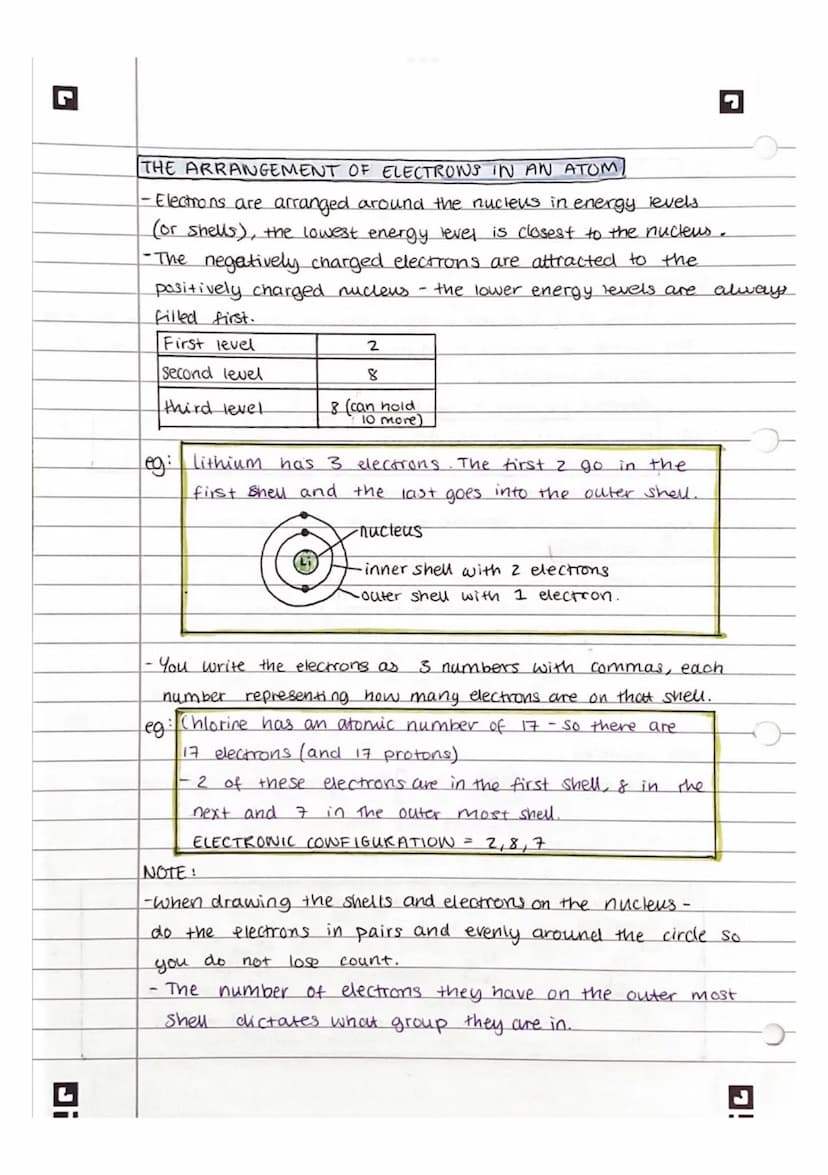 THE ARRANGEMENT OF ELECTRONS IN AN ATOM
- Electrons are arranged around the nucleus in energy levels
(or shells), the lowest energy level is closest to the nucleus.
- The negatively charged electrons are attracted to the
positively charged nucleus - the lower energy levels are always
filled first.
First level 2
Second level 8
third level 8 (can hold
10 more)
eg: lithium has 3 electrons. The first 2 go in the
first shell and the last goes into the outer shell.
nucleus
Li
inner shell with 2 electrons
outer shell with 1 electron.
- You write the electrons as 3 numbers with commas, each
number representing how many electrons are on that shell.
eg: Chlorine has an atomic number of 17 - so there are
17 electrons (and 17 protons)
- 2 of these electrons are in the first shell, 8 in the
next and 7 in the outer most shell.
ELECTRONIC CONFIGURATION = 2,8,7
NOTE:
- When drawing the shells and electrons on the nucleus -
do the electrons in pairs and evenly around the circle so
you do not lose count.
- The number of electrons they have on the outer most
shell dictates what group they are in.